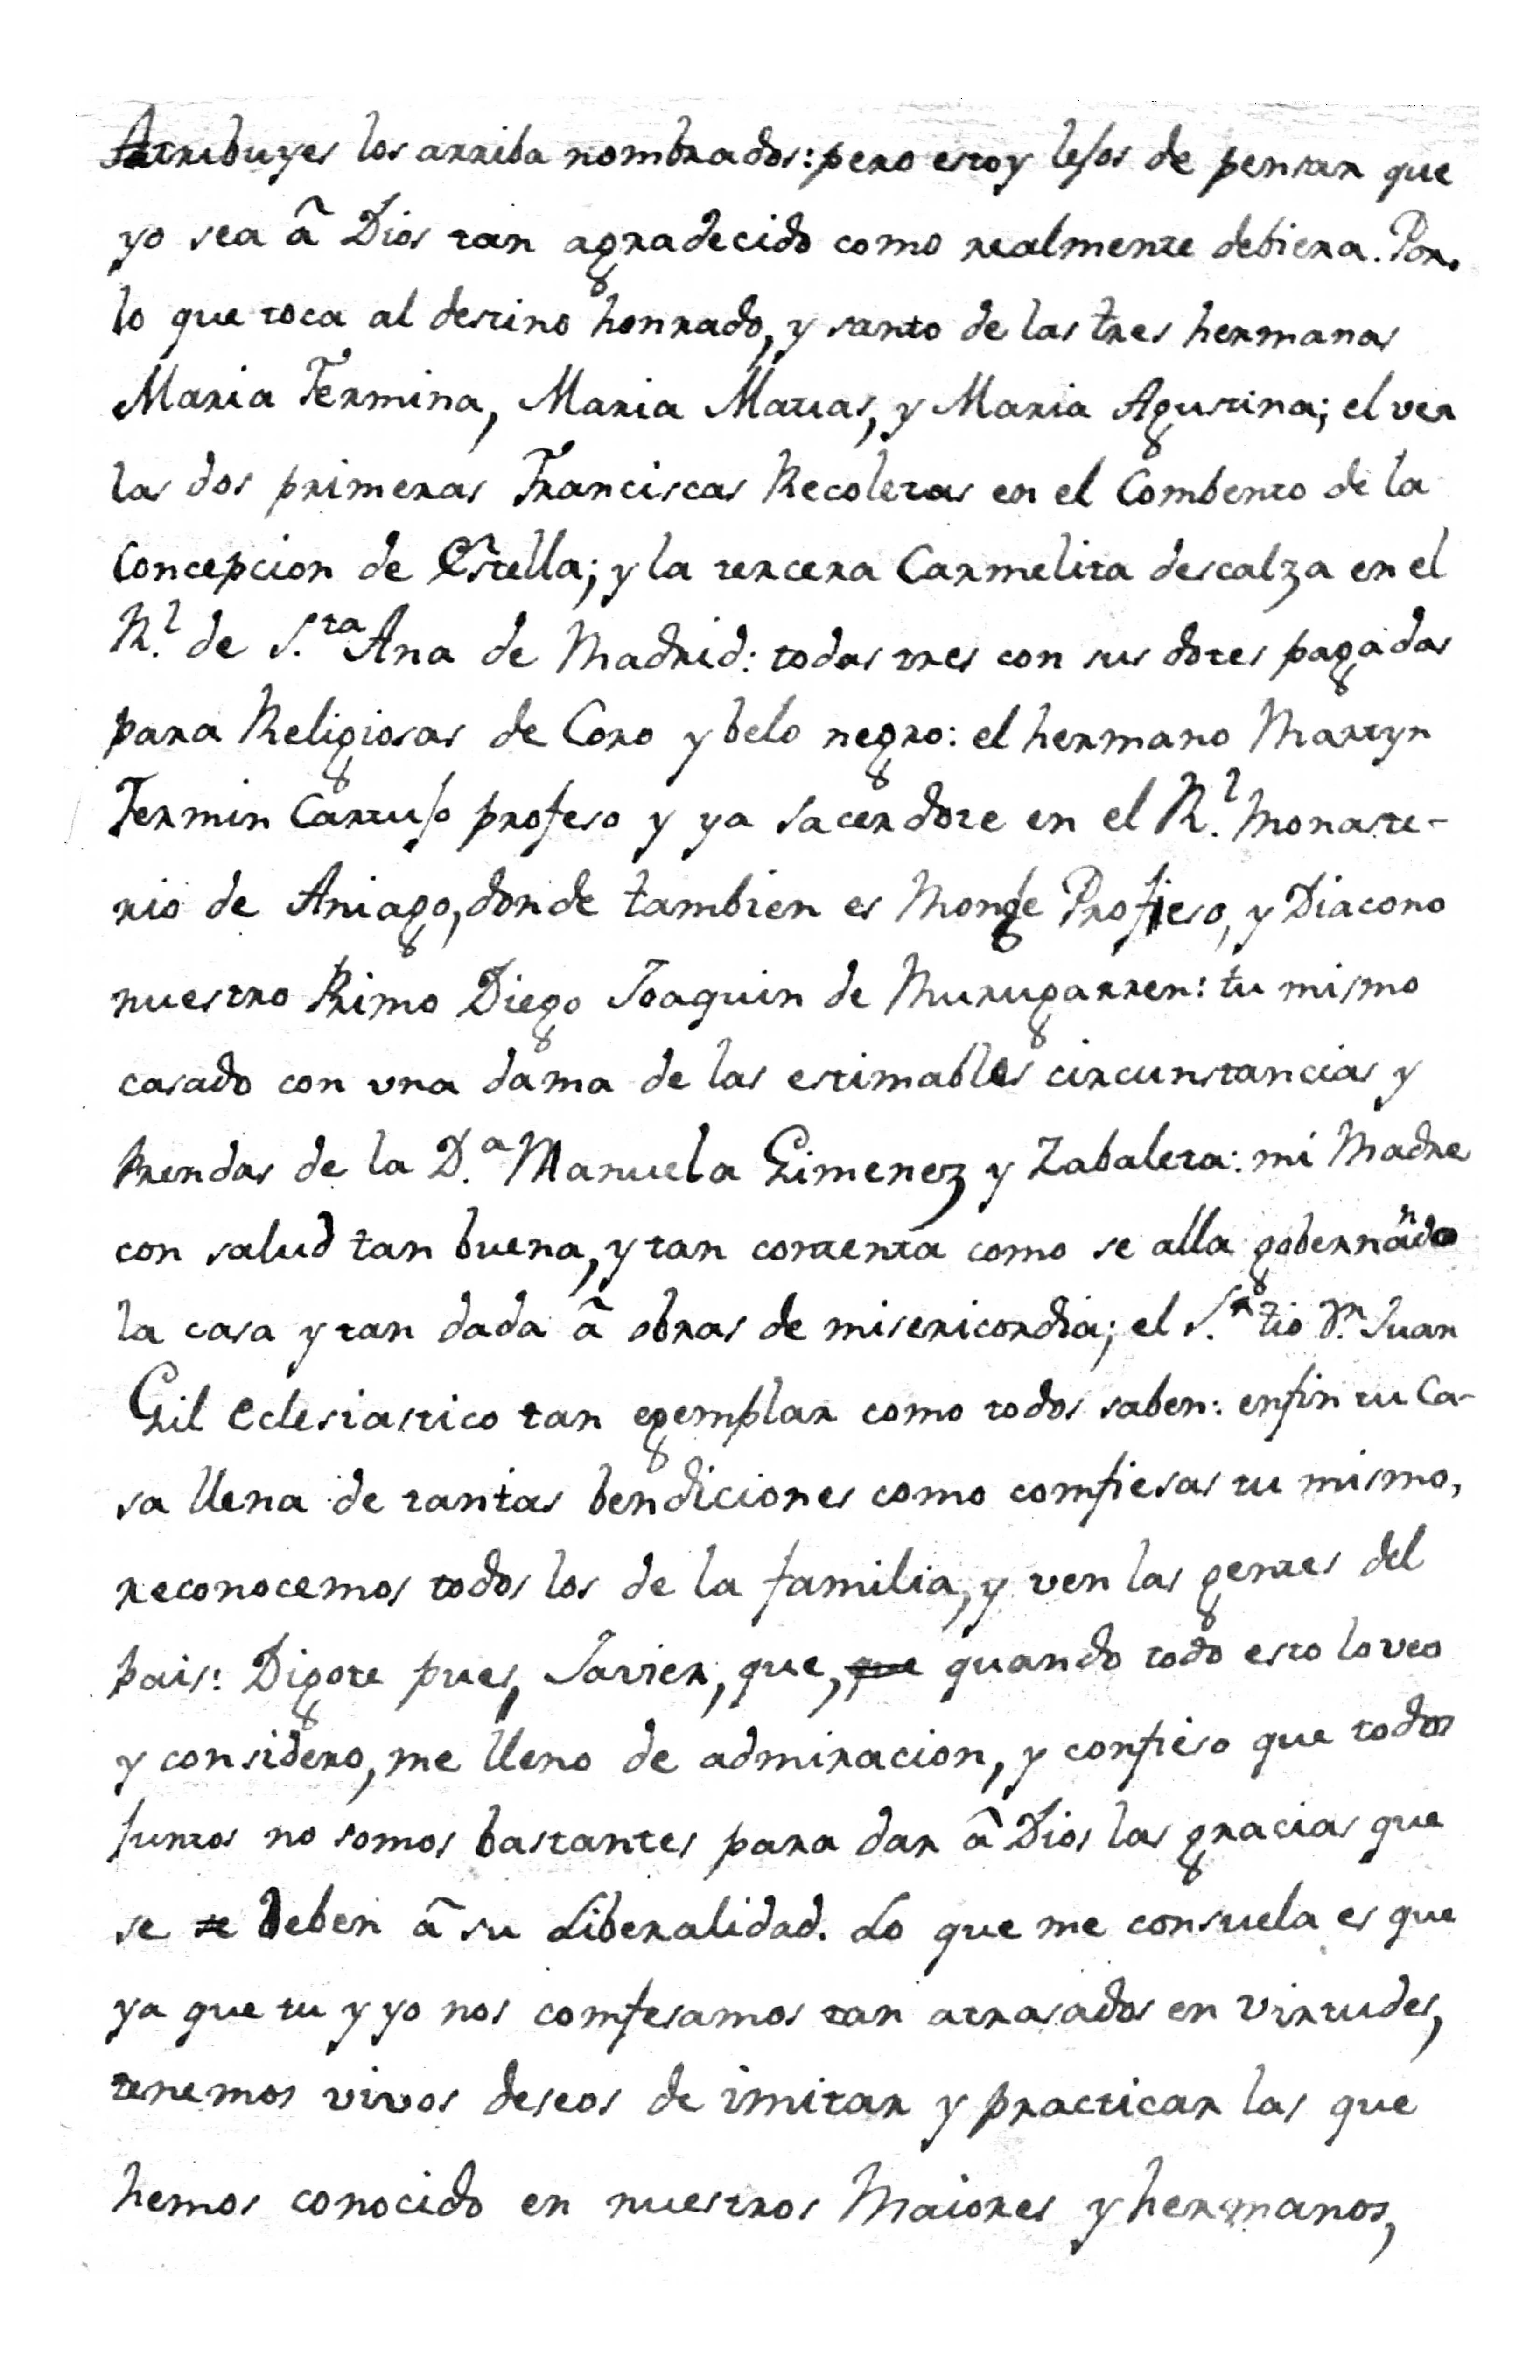 Atribuyes los arriba nombrados: pero estoy lejos de pensar que
yo sea â Dios tan agradecido como realmente debiera. Por
lo que toca al destino honrado, y santo de las tres hermanas
Maria Fermina, Maria Matias, y Maria Agustina; el ver
las dos primeras Franciscas Recoletas en el Combento de la
Concepcion de Estella; y la tercera Carmelita descalza en el
R.l de S.ta Ana de Madrid: todas tres con sus dotes pagadas
para Religiosas de Coro y belo negro: el hermano Martyn
Fermin Cartujo profeso y ya sacerdote en el R.l Monaste-
rio de Aniago, donde tambien es Monge Profeso, y Diacono
nuestro Primo Diego Joaquin de Murugarren: tu mismo
casado con una dama de las estimables circunstancias y
Prendas de la D.a Manuela Gimenez y Zabaleta: mi Madre
con salud tan buena, y tan contenta como se alla gobernando
la casa y tan dada â obras de misericordia; el S.r tio D.n Juan
Gil Eclesiastico tan egemplar como todos saben: enfin tu Ca-
sa llena de tantas bendiciones como comfiesas tu mismo,
reconocemos todos los de la familia, y ven las gentes del
pais: Digote pues, Javier, que, que quando todo esto lo veo
y considero, me lleno de admiracion, y confieso que todos
juntos no somos bastantes para dar â Dios las gracias que
se se deben â su Liberalidad. Lo que me consuela es que
ya que tu y yo nos comfesamos tan atrasados en virtudes,
tenemos vivos deseos de imitar y practicar las que
hemos conocido en nuestros Maiores y hermanos,